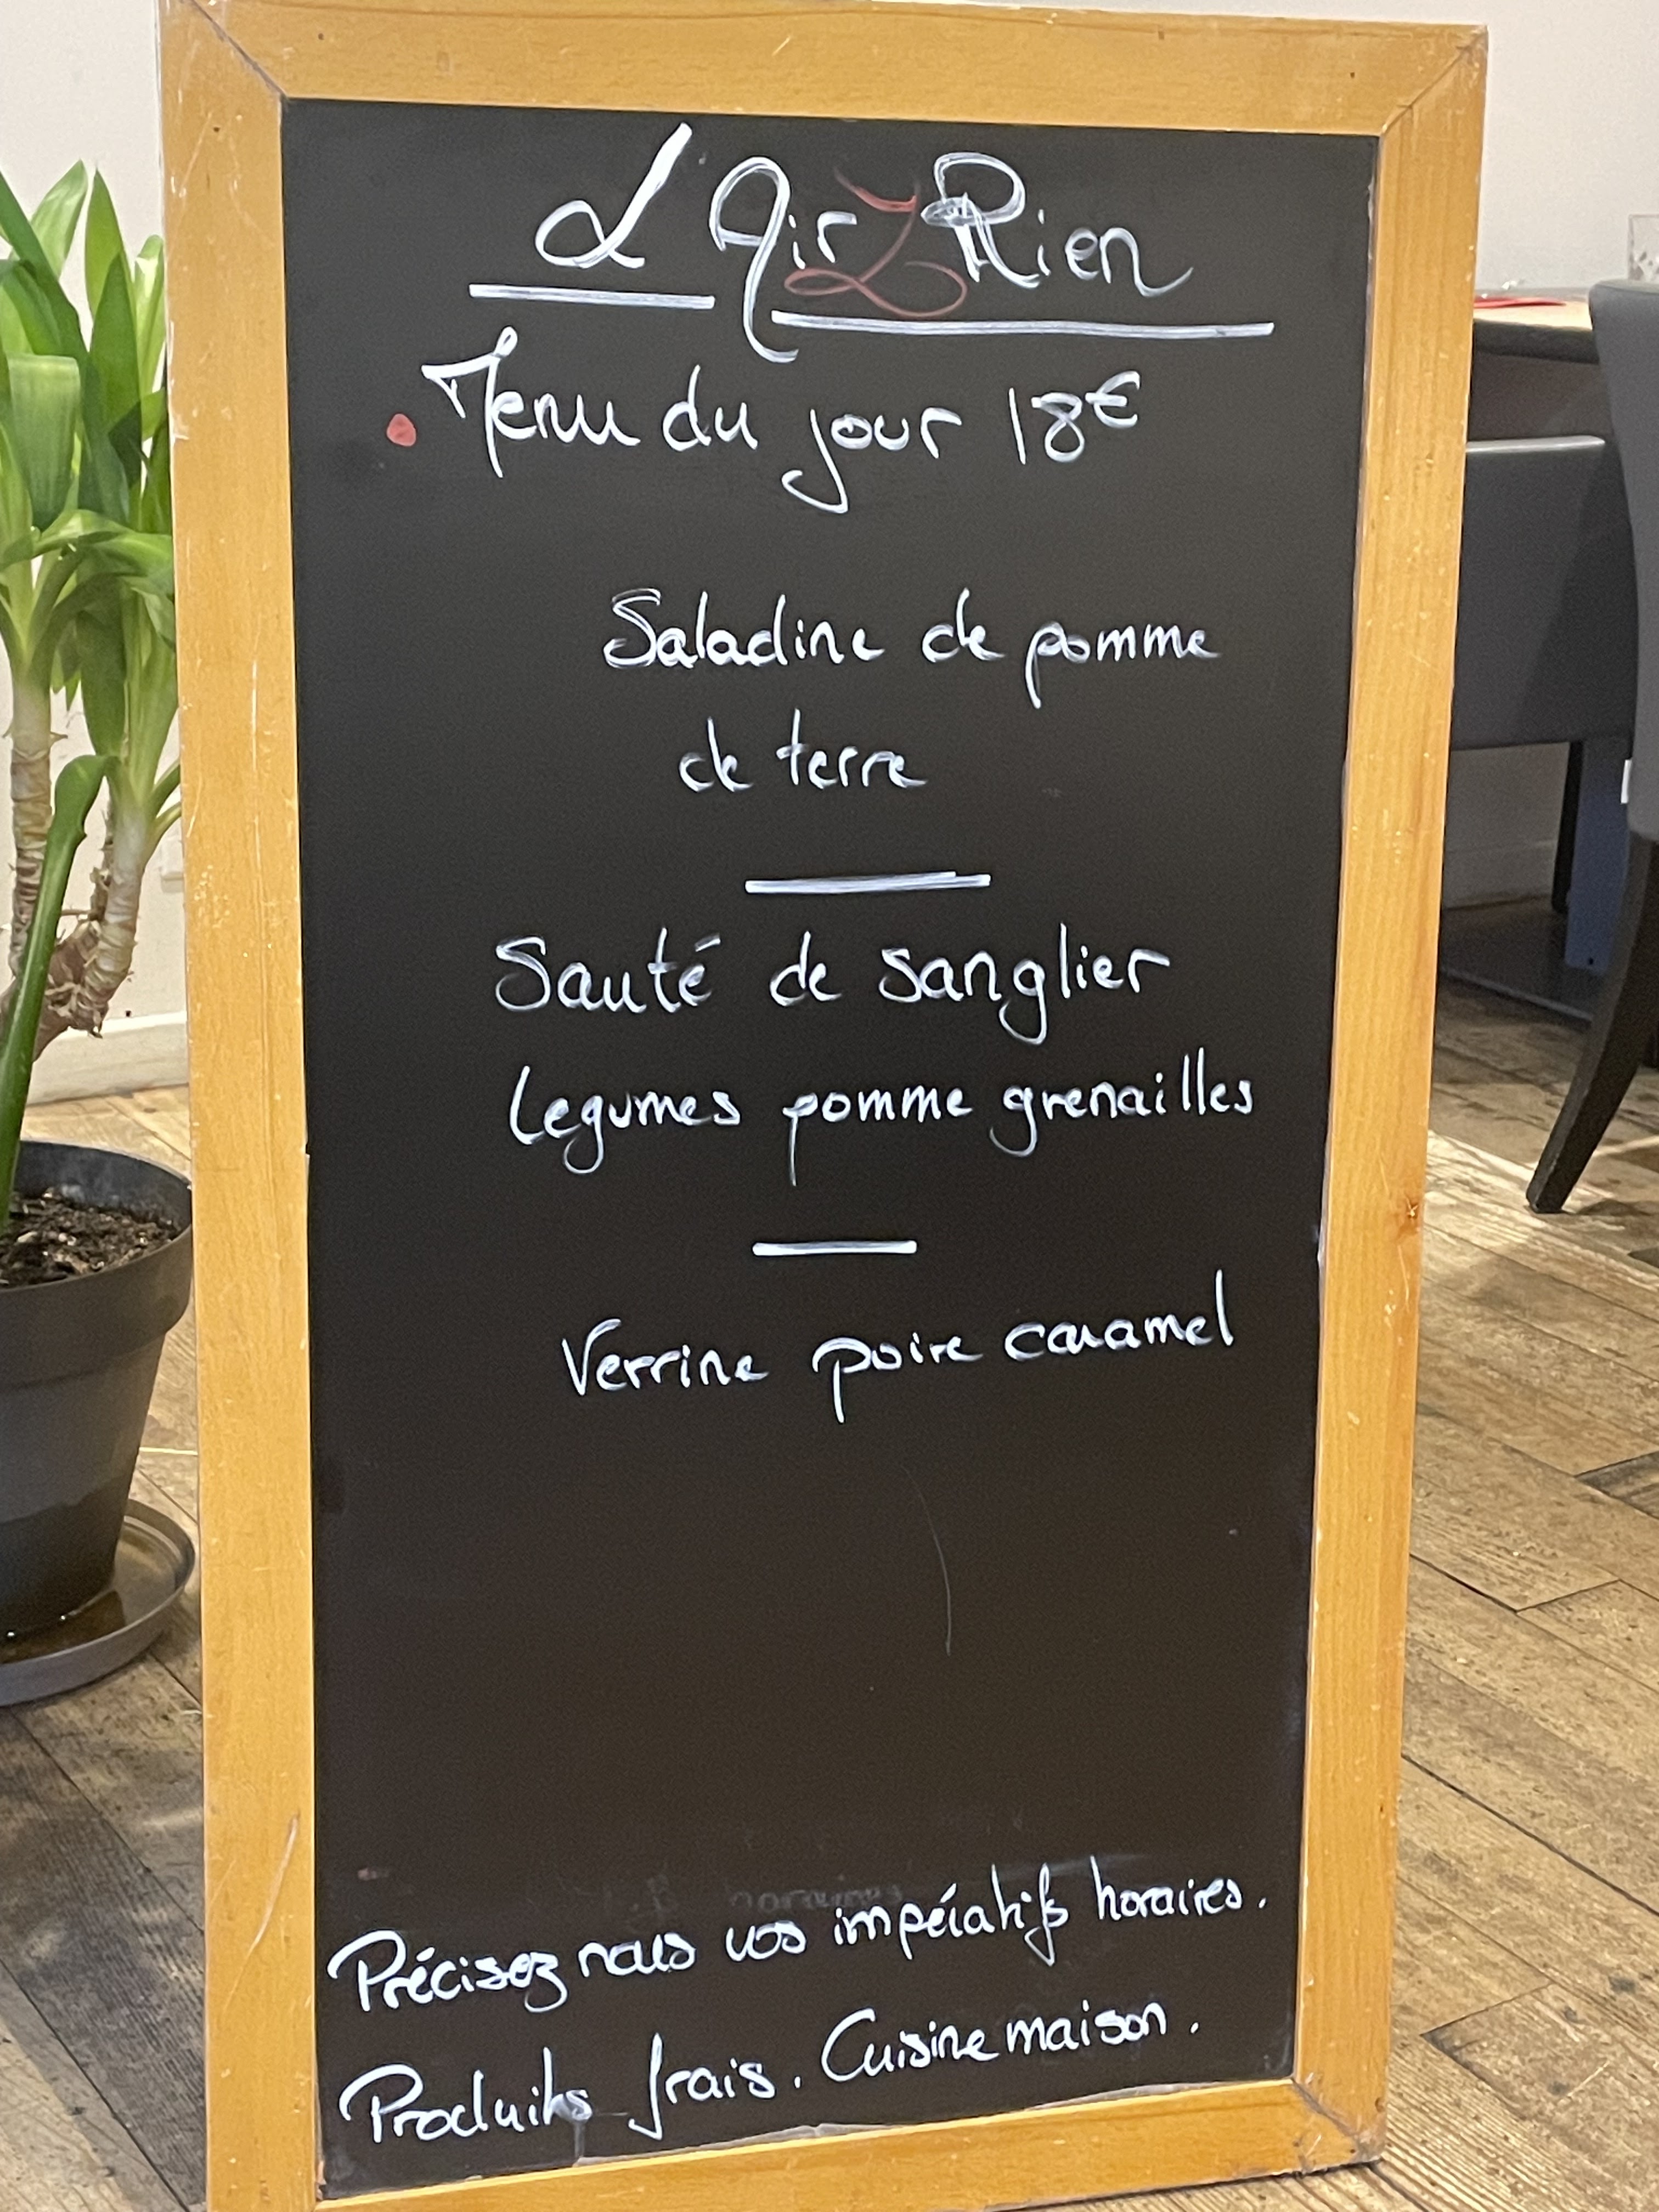 L'Air 2 Rien
Menu du jour 18€
Saladine de pomme
de terre
Sauté de sanglier
legumes pomme grenailles
Verrine poire caramel
Précisez nous vos impératifs horaires.
Produits frais. Cuisine maison.